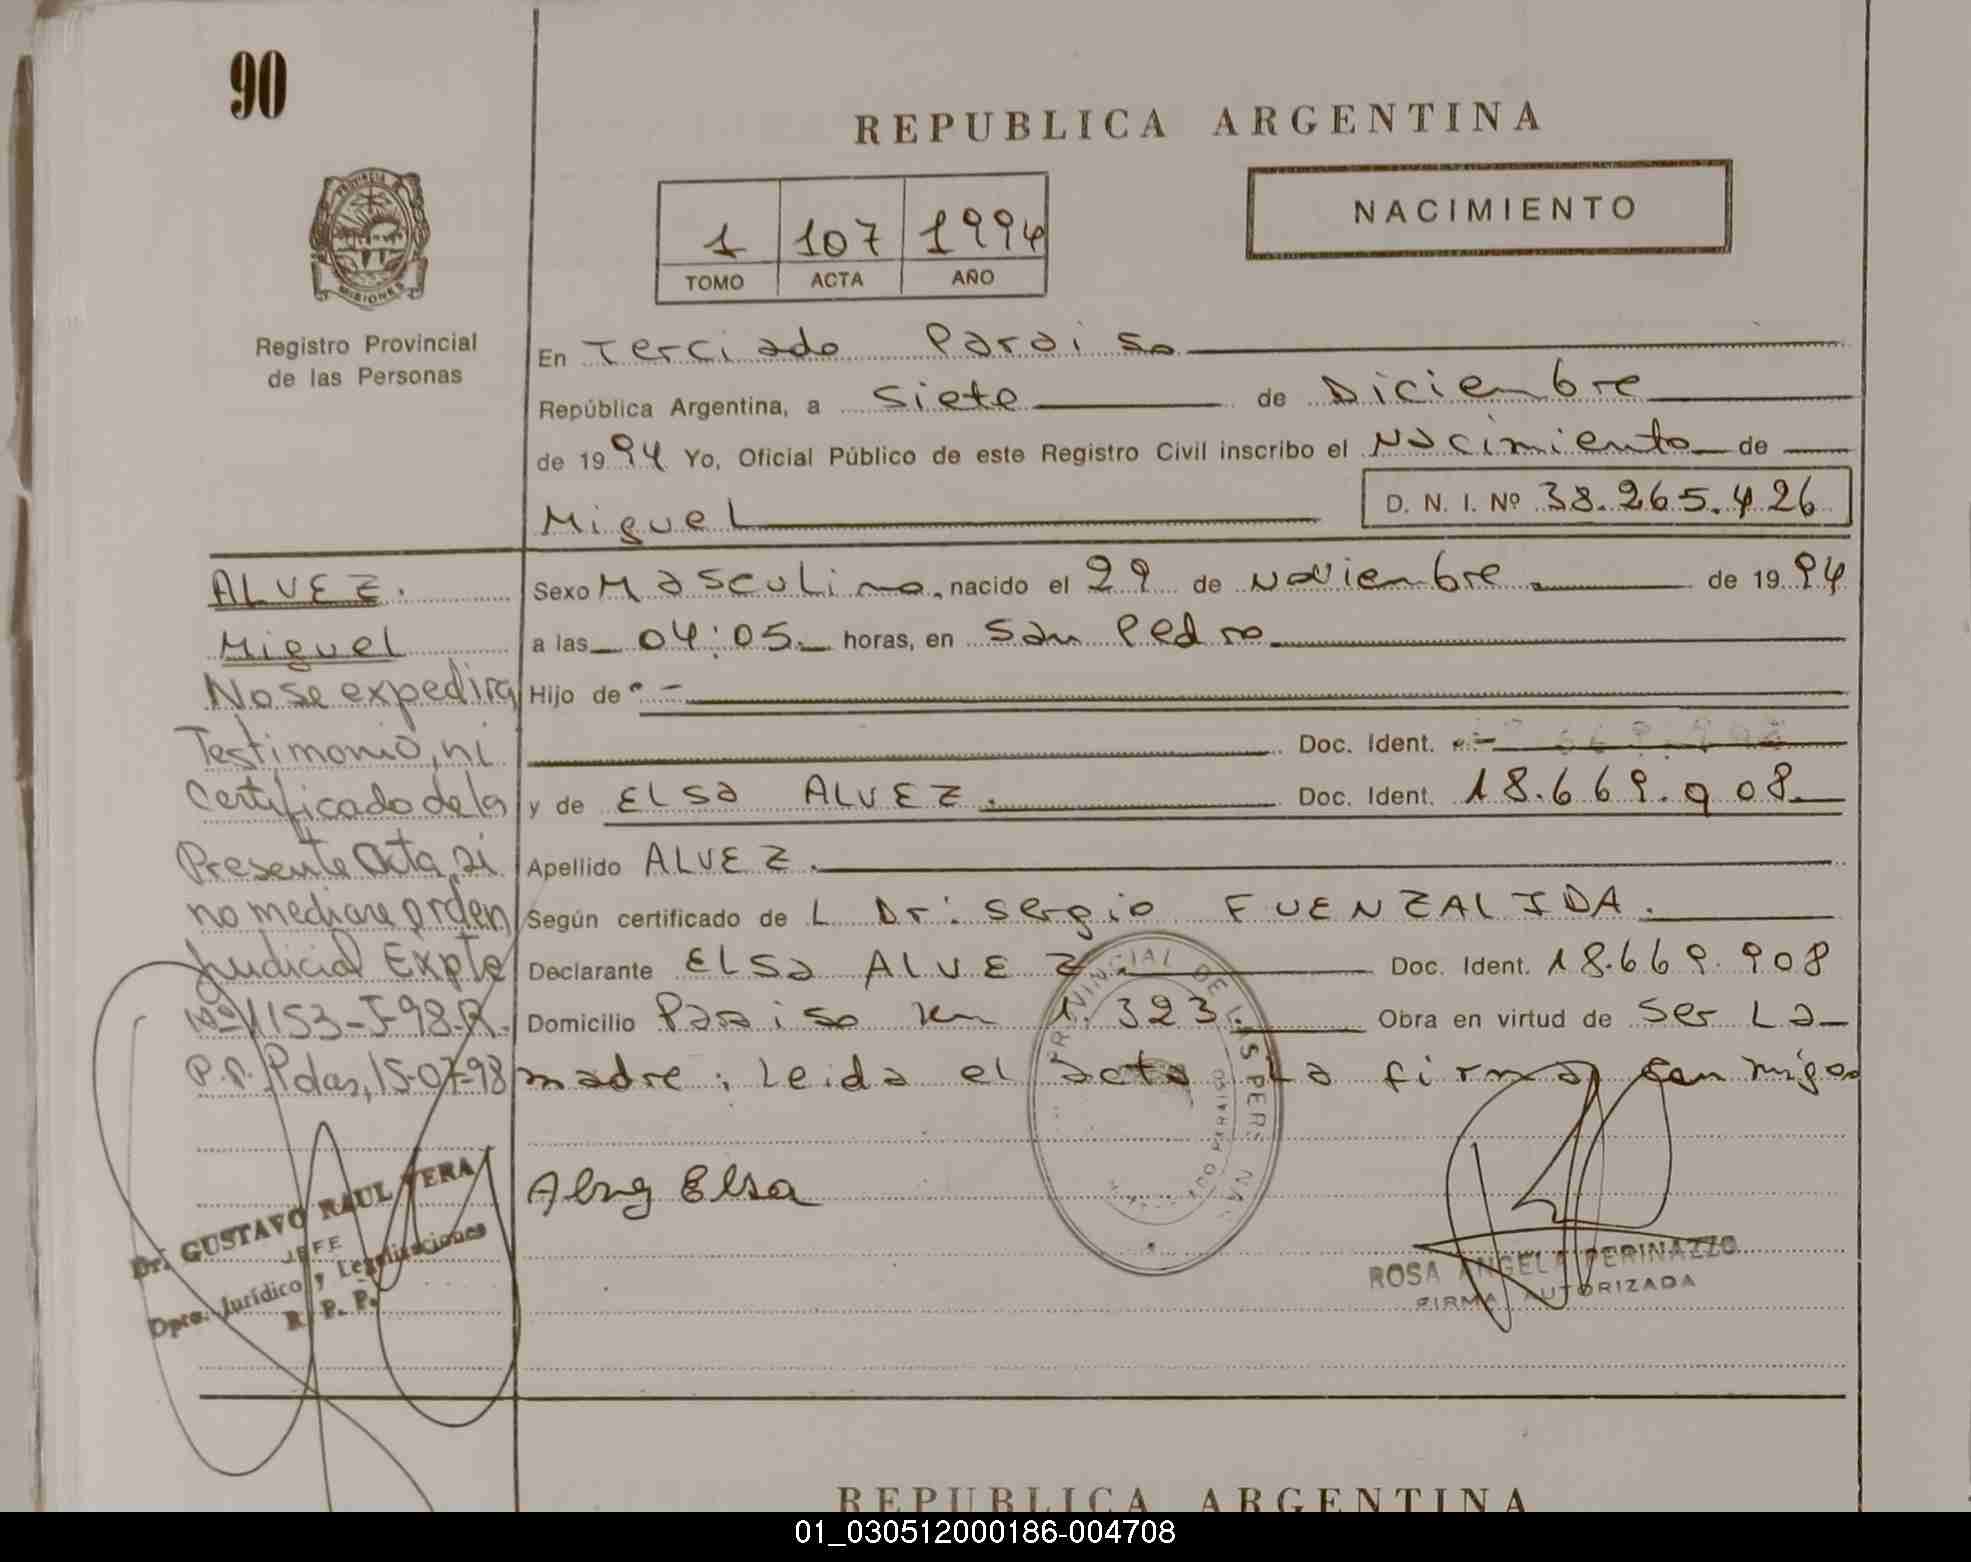 90
REPUBLICA ARGENTINA
PROVINCIA
MISIONES
Registro Provincial
de las Personas
1 107 1994
TOMO ACTA AÑO
NACIMIENTO
En Terciado Paraiso
República Argentina, a Siete de Diciembre
de 1994 Yo, Oficial Público de este Registro Civil inscribo el Nacimiento de
Miguel D. N. I. Nº 38.265.426
ALVEZ.
Miguel
No se expedira
Testimonio, ni
Certificado de la
Presente Acta, si
no mediare orden
Judicial Expte
Nº 1153-J-98.R.
P.P. Pdas, 15-07-98
Dr. GUSTAVO RAUL VERA
JEFE
Dpto. Jurídico y Legalizaciones
R. P. P.
Sexo Masculino, nacido el 29 de Noviembre. de 1994
a las 04:05. horas, en San Pedro
Hijo de
Doc. Ident.
y de ELSA ALVEZ. Doc. Ident. 18.669.908
Apellido ALVEZ.
Según certificado de L Dr: Sergio FUENZALIDA.
Declarante ELSA ALVEZ. Doc. Ident. 18.669.908
Domicilio Paraiso Km 1.323. Obra en virtud de Ser La
madre; Leida el acta La firma conmigo
Elsa
ROSA ANGELA PERINAZZO
FIRMA AUTORIZADA
REPUBLICA ARGENTINA
01_030512000186-004708